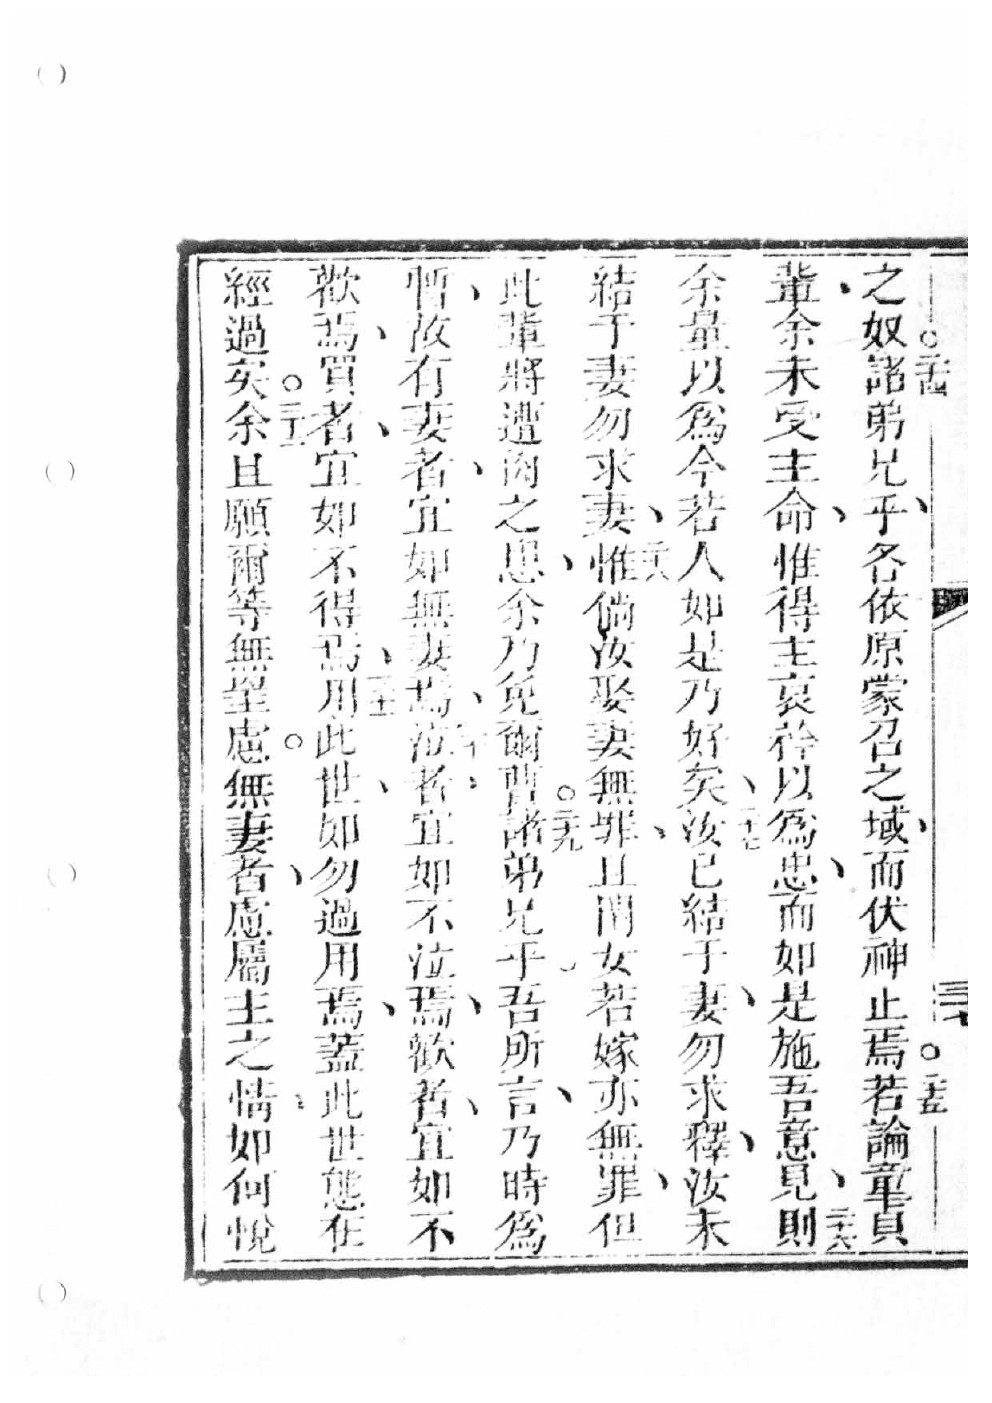 之奴○二十四諸弟兄乎、各依原蒙召之域、而伏神止焉○二十五若論童貞
輩、余未受主命、惟得主哀矜以為忠、而如是施吾意見、二十六則
余量以為今若人如是乃好矣、二十七汝已結于妻、勿求釋、汝未
結于妻、勿求妻、二十八惟倘汝娶妻無罪、且閨女若嫁亦無罪、但
此輩將遭肉之患、余乃免爾曹○二十九諸弟兄乎、吾所言、乃時為
暫、故有妻者、宜如無妻焉、三十泣者、宜如不泣焉、歡者、宜如不
歡焉、買者、宜如不得焉、三十一用此世、如勿過用焉、蓋此世態在
經過矣○三十二余且願爾等無罣慮○無妻者、慮屬主之情、如何悅
三十七